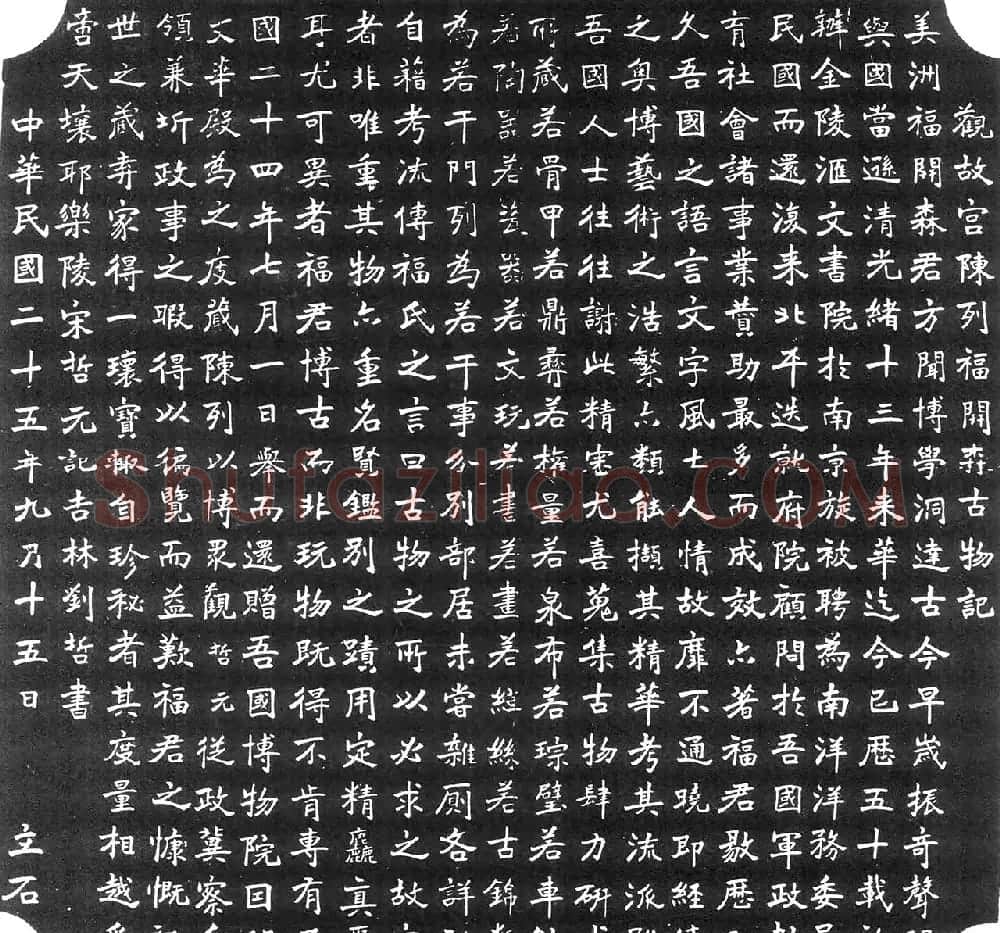 觀故宮陳列福開森古物記
美洲福開森君方聞博學洞達古今早歲振奇聲
與國當遜清光緒十三年來華迄今已歷五十載
辦金陵滙文書院於南京旋被聘為南洋洋務委
民國而還復来北平迭就府院顧問於吾國軍政
育社會諸事業贊助最多而成效亦著福君敭歷
久吾國之語言文字風土人情故靡不通曉即經
之奥博藝術之浩繁亦類能擷其精華考其流派
吾國人士往往謝此精宏尤喜蒐集古物肆力研
所藏若骨甲若鼎彝若權量若泉布若琮璧若車
若陶器若瓷器若文玩若書若畫若緙絲若古錦
為若干門列為若干事分別部居未嘗雜厕各詳
自藉考流傳福氏之言曰古物之所以必求之故
者非唯重其物亦重名賢鑑別之蹟用定精麤真
耳尤可異者福君博古而非玩物既得不肯專有
國二十四年七月一日舉而還贈吾國博物院囙
文華殿為之庋藏陳列以博眾觀哲元從政冀察
領兼圻政事之暇得以徧覽而益歎福君之慷慨
世之藏弆家得一瓌寶輙自珍秘者其度量相越
啻天壤耶樂陵宋哲元記吉林劉哲書
中華民國二十五年九乃十五日 立石
Shufaziliao.COM